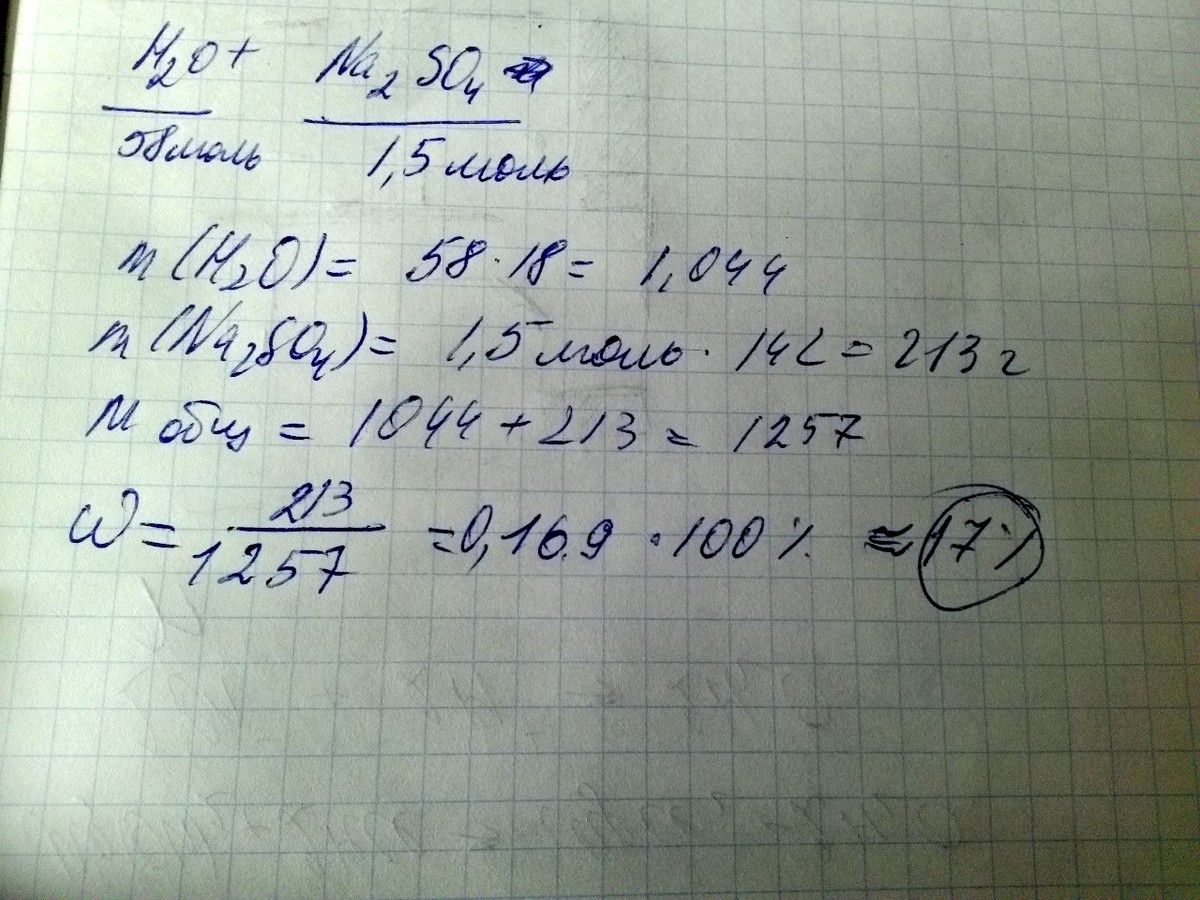 H₂O + Na₂SO₄
58моль 1,5 моль
m (H₂O) = 58 · 18 = 1,044
m (Na₂SO₄) = 1,5 моль · 142 = 213 г
m общ = 1044 + 213 = 1257
ω = 213/1257 = 0,169 · 100% ≈ 17%